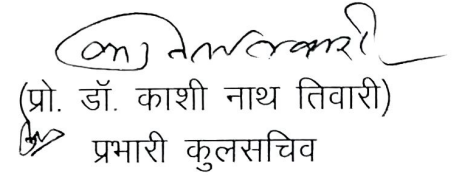 (प्रो. डॉ. काशी नाथ तिवारी)
प्रभारी कुलसचिव